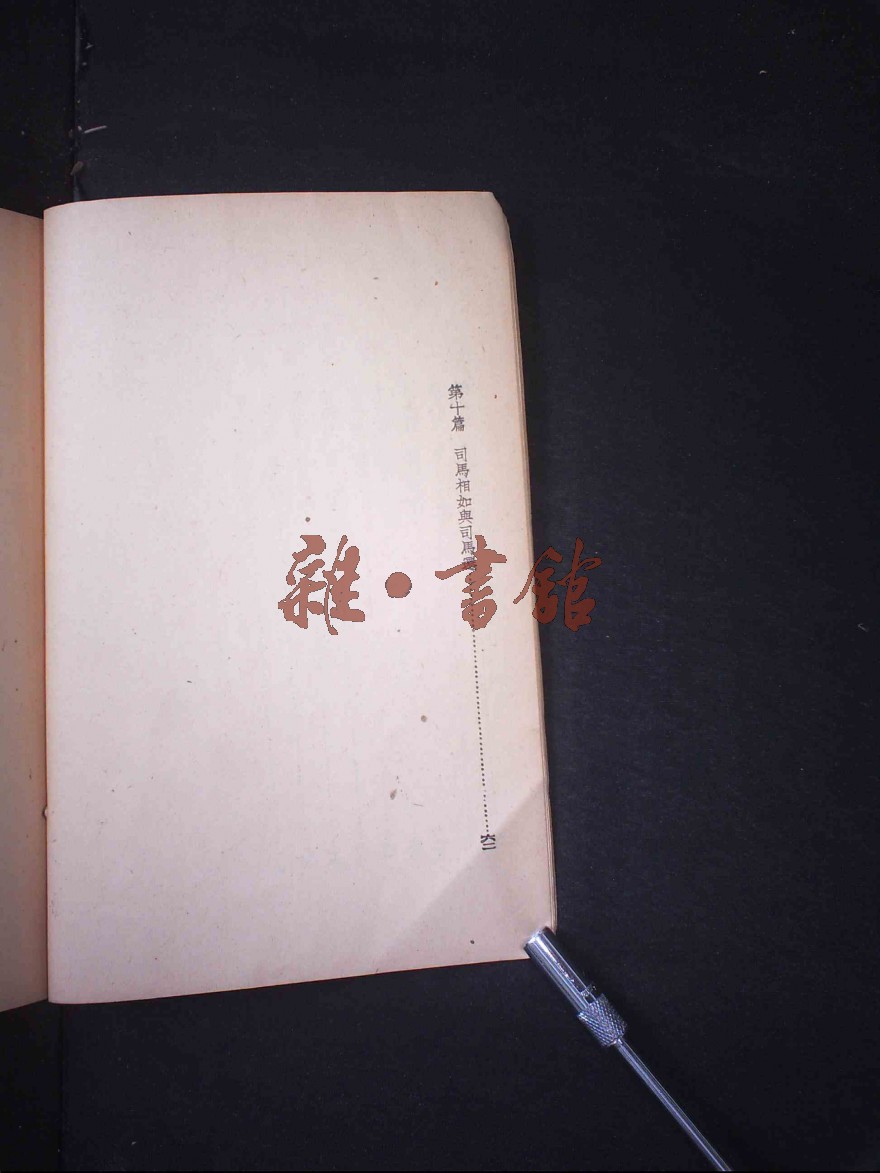 第十篇 司馬相如與司馬……六二
雜·書館